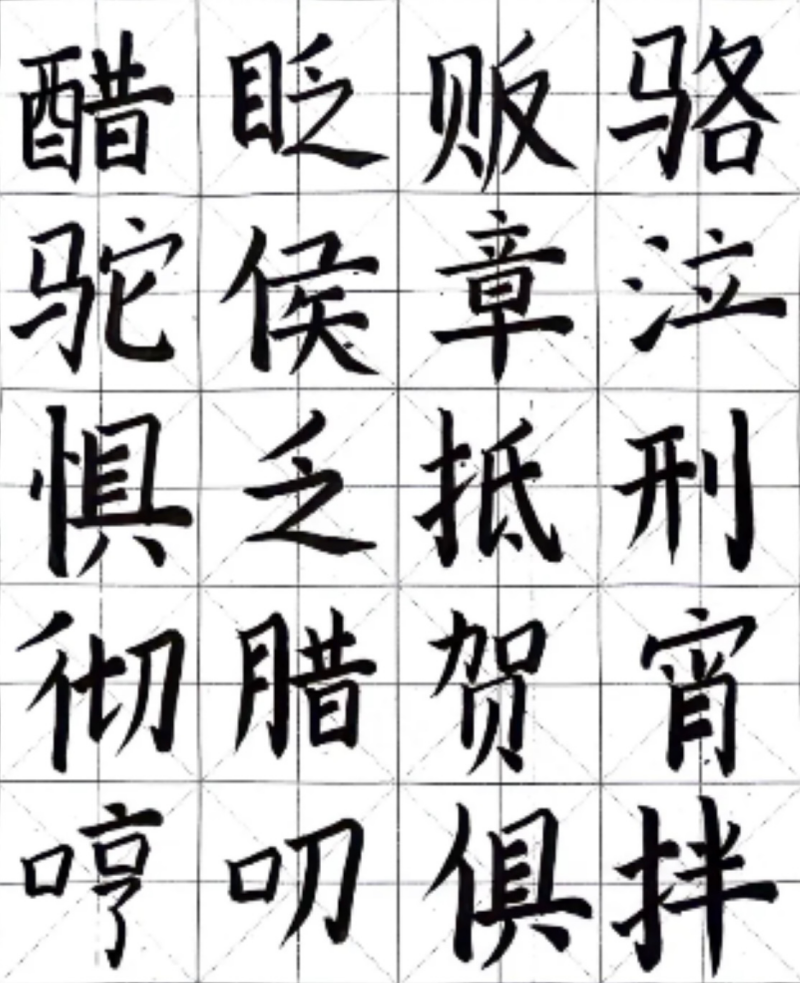 醋眨贩骆
驼侯章泣
惧乏抵刑
彻腊贺宵
哼叨俱拌